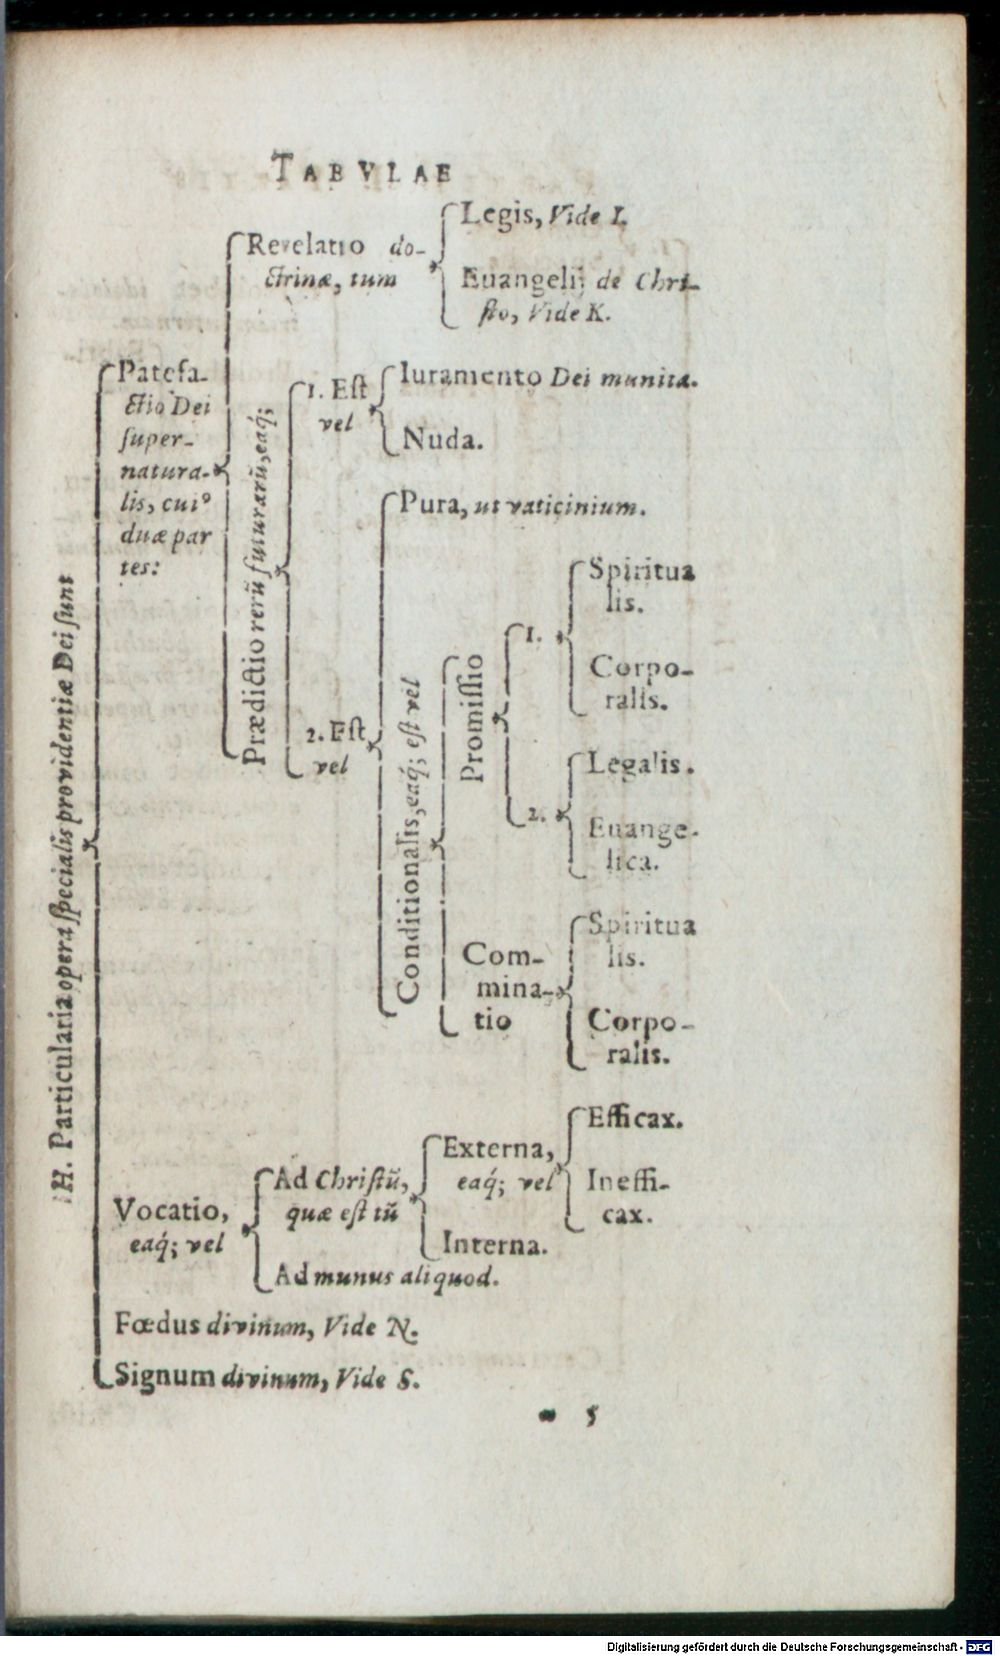 TABVLAE
H. Particularia opera specialis providentiæ Dei sunt
Patefa-
ctio Dei
super-
natura-
lis, cui⁹
duæ par
tes:
Revelatio do-
ctrinæ, tum
Legis, Vide I.
Euangelij de Chri-
sto, Vide K.
Prædictio rerũ futurarũ, eaq́;
1. Est
vel
Iuramento Dei munita.
Nuda.
2. Est
vel
Pura, ut vaticinium.
Conditionalis, eaq́; est vel
Promissio
1.
Spiritua
lis.
Corpo-
ralis.
2.
Legalis.
Euange-
lica.
Com-
mina-
tio
Spiritua
lis.
Corpo-
ralis.
Vocatio,
eaq́; vel
Ad Christũ,
quæ est tũ
Externa,
eaq́; vel
Efficax.
Ineffi-
cax.
Interna.
Ad munus aliquod.
Fœdus divinum, Vide N.
Signum divinum, Vide S.
5
Digitalisierung gefördert durch die Deutsche Forschungsgemeinschaft - DFG